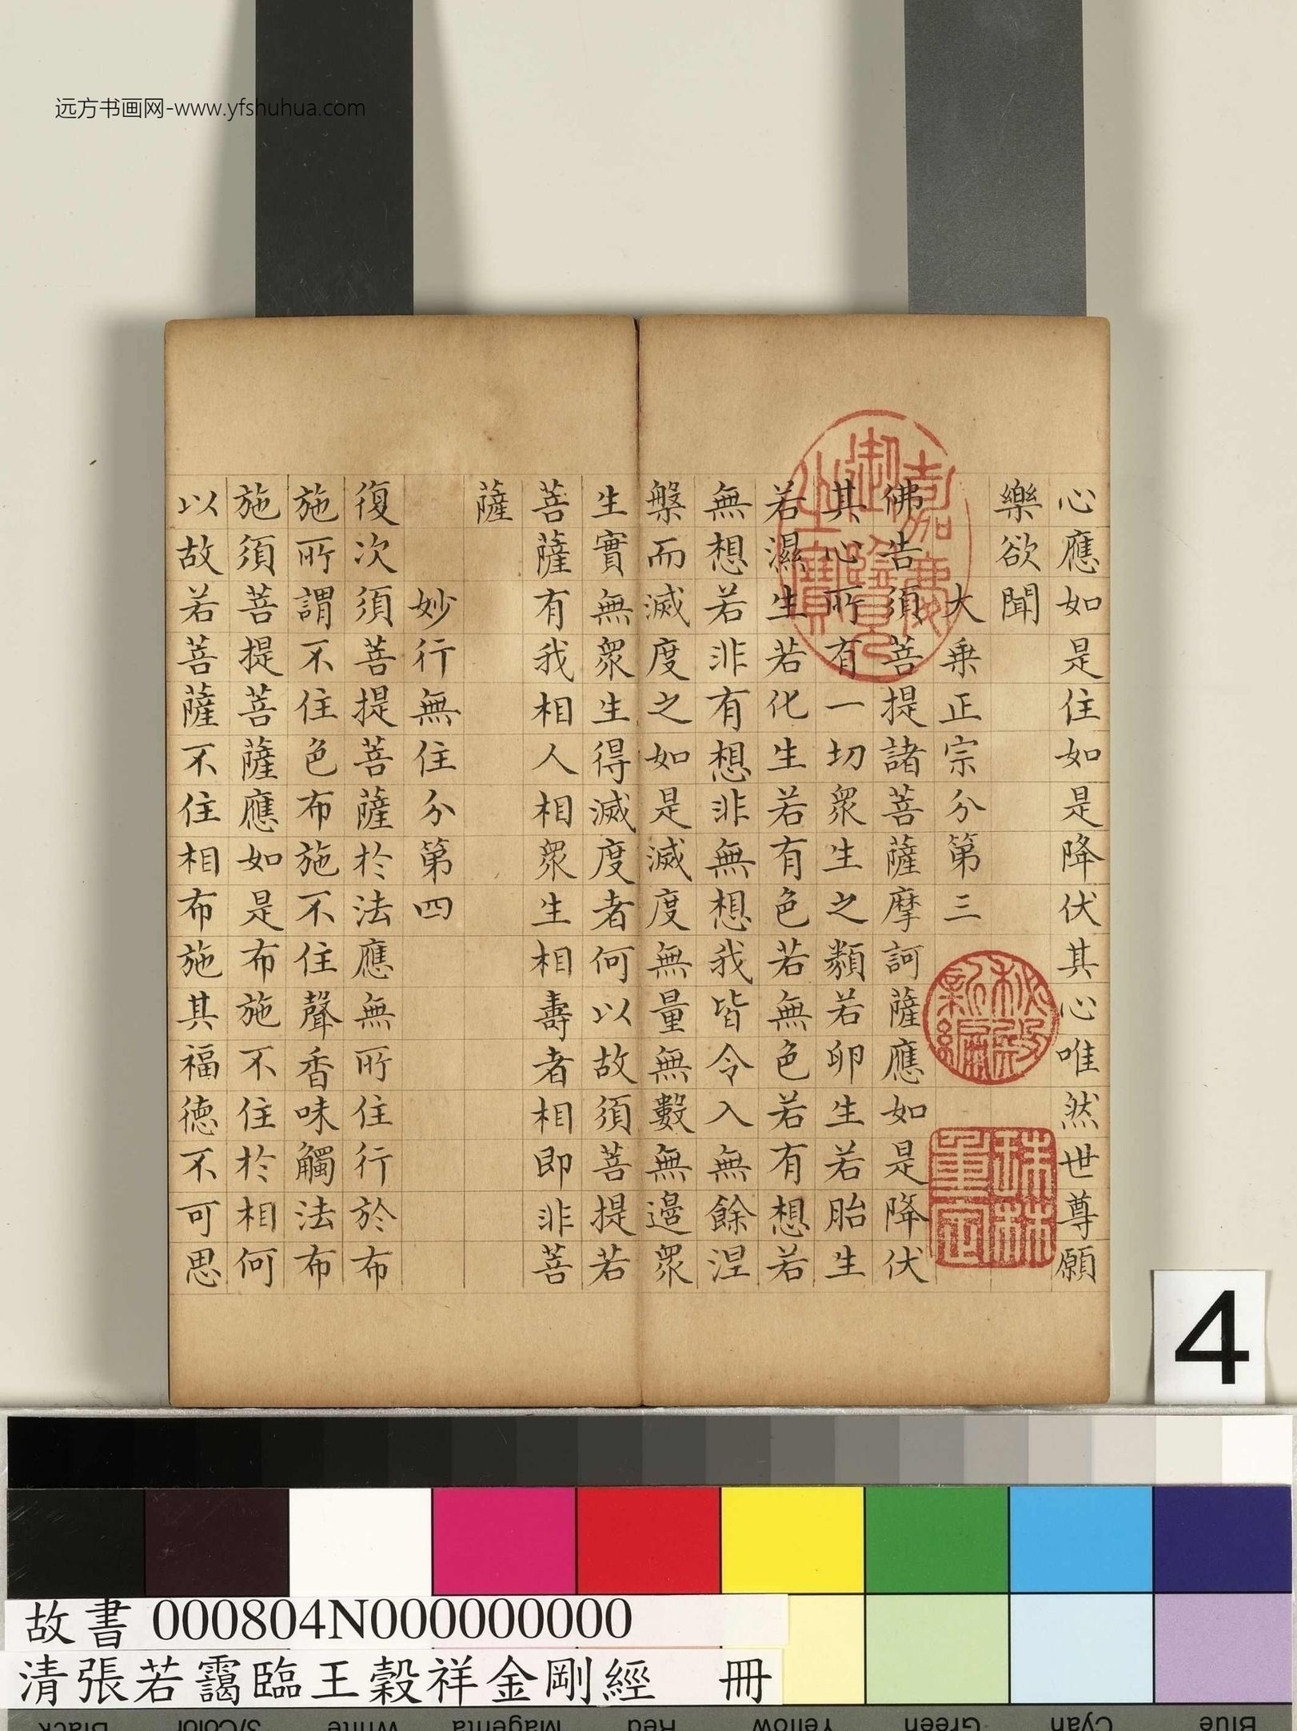 远方书画网-www.yfshuhua.com
心應如是住如是降伏其心唯然世尊願
樂欲聞
大乗正宗分第三
佛告須菩提諸菩薩摩訶薩應如是降伏
其心所有一切衆生之類若卵生若胎生
若濕生若化生若有色若無色若有想若
無想若非有想非無想我皆令入無餘涅
槃而滅度之如是滅度無量無數無邊衆
生實無衆生得滅度者何以故須菩提若
菩薩有我相人相衆生相壽者相即非菩
薩
妙行無住分第四
復次須菩提菩薩於法應無所住行於布
施所謂不住色布施不住聲香味觸法布
施須菩提菩薩應如是布施不住於相何
以故若菩薩不住相布施其福德不可思
嘉慶御覽之寶
秘殿新編
珠林重定
4
故書 000804N000000000
清張若靄臨王穀祥金剛經 冊
Black 3/Color White Magenta Red Yellow Green Cyan Blue